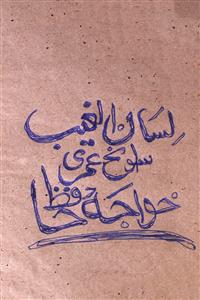 لِسان الغیب
سوانح عمری
خواجہ حافظ